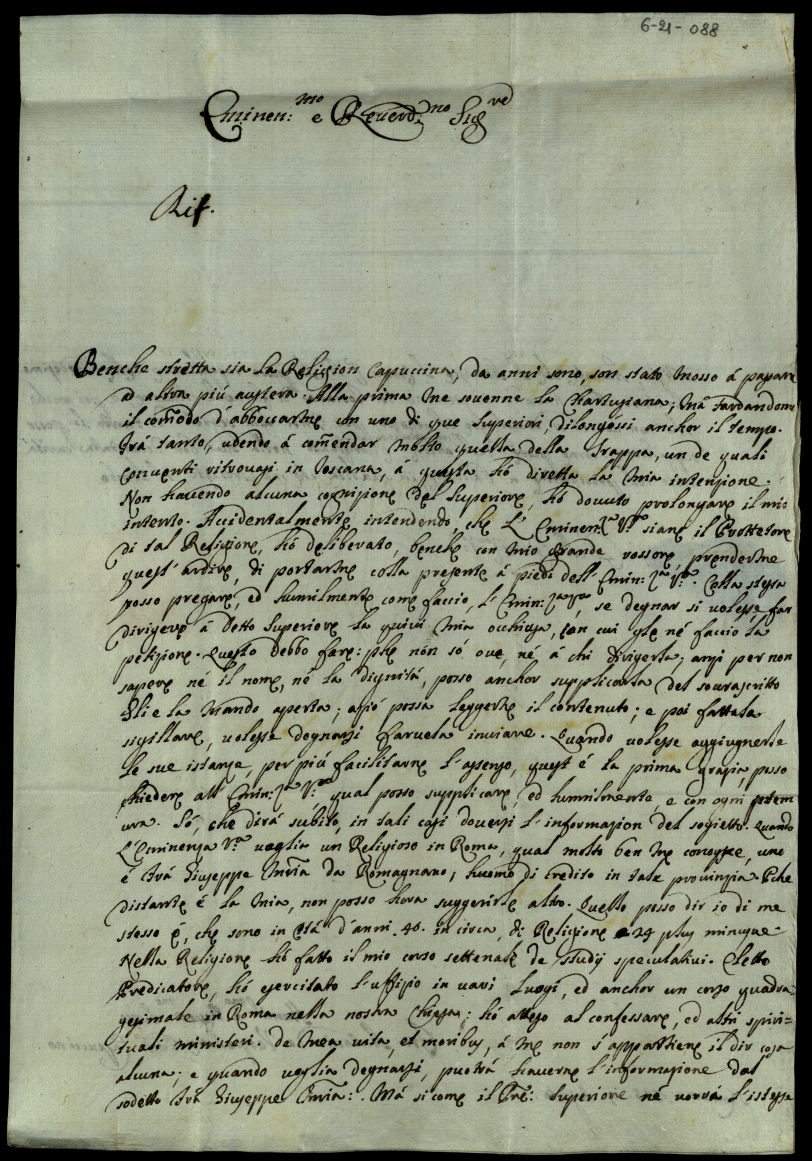 6-21-088
Eminen:mo e Reverd:mo Sigre
Rif.
Benche stretta sia la Religion Capuccina, da anni sono, son stato mosso á passare
ad altra piú austera. Alla prima me sovenne la Chartusiana; má tardandomi
il comõdo d'abboccarme con uno di que Superiori dilongossi anchor il tempo.
Trá tanto, udendo á com̃endar molto quella della Trappa, un de quali
conventi ritrovasi in Toscana, á questa hó diretta la mia intenzione.
Non havendo alcuna cognizione del Superiore, hó dovuto prolongare il mio
intento. Accidentalmente intendendo, che L'Eminen:za Vra siane il Prottetore
di tal Religione, hó deliberato, benche con mio grande rossore, prenderme
quest'ardire, di portarme colla presente á piedi dell'Emin:za Vra. Colla stessa
posso pregare, ed humilmente come faccio, l'Emin:za Vra, se degnar si volesse, far
dirigere á detto Superiore la quivi mia occhiusa, con cui gle né faccio la
petizione. Questo debbo fare: pche non só ove, né á chi dirigerla; anzi per non
sapere né il nome, né la dignitá, posso anchor supplicarla del sovrascritto
Gli e la mando aperta; acció possa leggerne il contenuto; e poi fattala
sigillare, volesse degnarsi farvela inviare. Quando volesse aggiugnerle
le sue istanze, per piú facilitarne l'assenso, quest'é la prima grazia, posso
chiedere all'Emin:za Vra, qual posso supplicare, ed humilmente, e con ogni premu
ura. Só, che dirá subito, in tali casi doversi l'information del sogietto. Quando
L'Eminenza Vra voglia un Religioso in Roma, qual molto ben me conosce, uno
é frá Giuseppe Maria da Romagnano, huomo di credito in tale provinzia. Pche
distante é la mia, non posso hora suggerirle altro. Quello posso dir io di me
stesso é, che sono in etá d'anni 40. in circa, di Religione 24 plus minusve.
Nella Religione hó fatto il mio corso settenale de studij speculativi. Eletto
Predicatore, hó esercitato l'uffizio in varij luogi, ed anchor un corso quadra
gesimale in Roma nella nostra Chiesa; hó atteso al confessare, ed altri spiri-
tuali ministeri. De mea vita, et moribus, á me non s'appartiene il dir cosa
alcuna; e quando voglia degnarsi, puotrá haverne l'informazione dal
sodetto frá Giuseppe Maria:. Má si come il Pre: Superiore né vorrá l'istessa